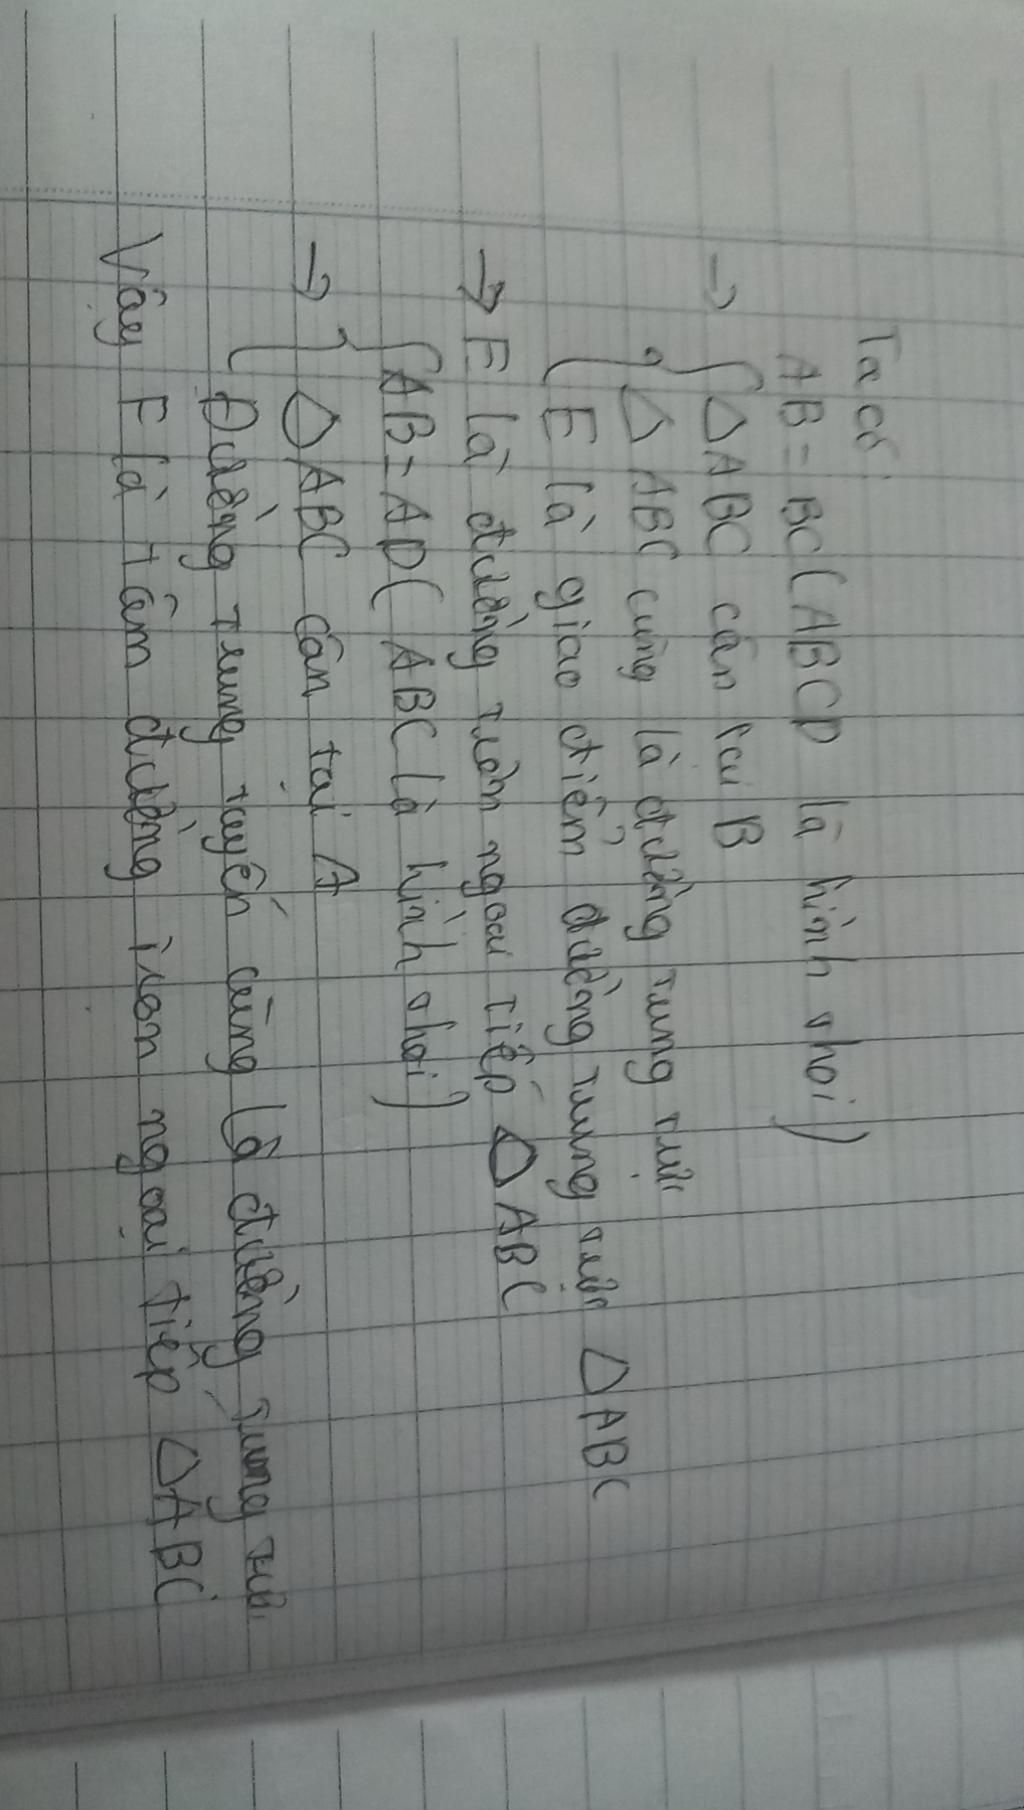 Ta có:
AB = BC ( ABCD là hình thoi )
→ { △ ABC cân tại B
△ ABC cũng là đường trung trực
E là giao điểm đường trung trực △ ABC
→ E là đường tròn ngoại tiếp △ ABC
{ AB = AD ( ABC là hình thoi )
→ { △ ABC cân tại A
Đường trung tuyến cũng là đường trung trực
Vậy F là tâm đường tròn ngoại tiếp △ ABC